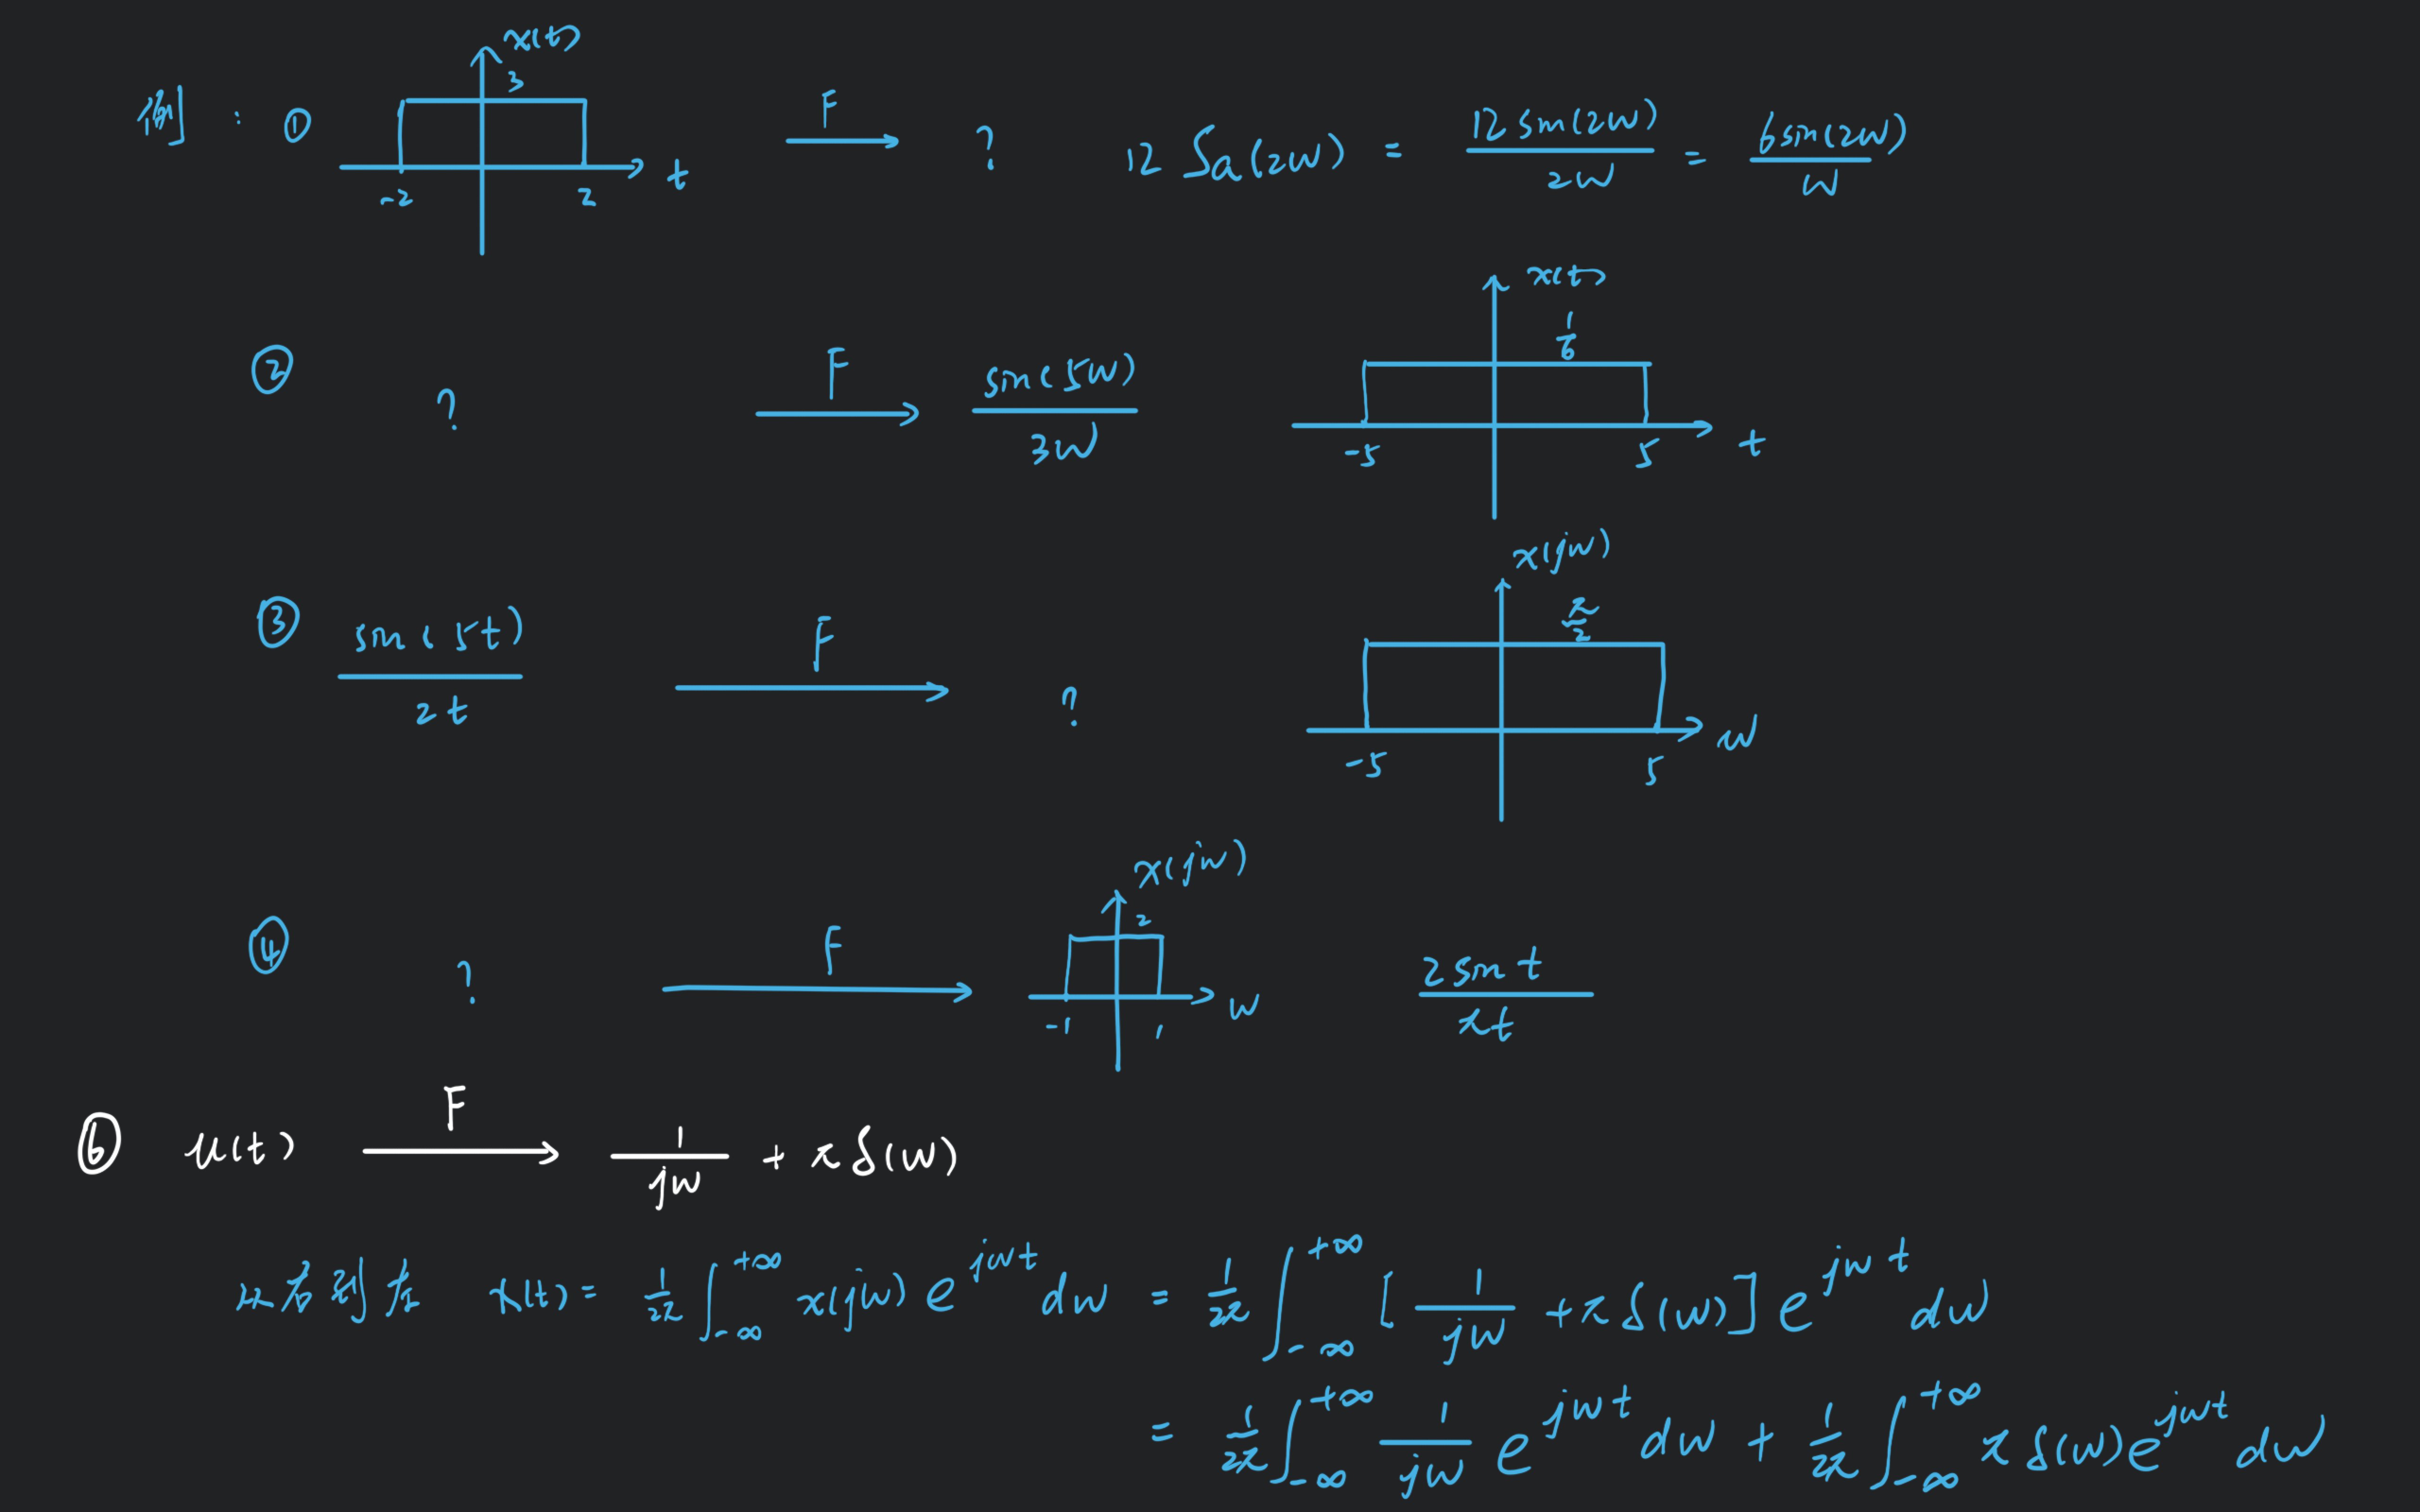 例: ① x(t) 3 -2 2 t F ? 12 Sa(2w) = 12 sin(2w) / 2w = 6 sin(2w) / w
② ? F sin(5w) / 3w x(t) 1/6 -5 5 t
③ sin(5t) / 2t F ? x(jw) π/2 -5 5 w
④ ? F x(jw) 2 -1 1 w 2 sin t / πt
⑥ u(t) F 1/jw + πδ(w)
x(t) = 1/2π ∫_{-∞}^{+∞} x(jw) e^{jwt} dw = 1/2π ∫_{-∞}^{+∞} [ 1/jw + πδ(w)] e^{jwt} dw
= 1/2π ∫_{-∞}^{+∞} 1/jw e^{jwt} dw + 1/2π ∫_{-∞}^{+∞} πδ(w) e^{jwt} dw